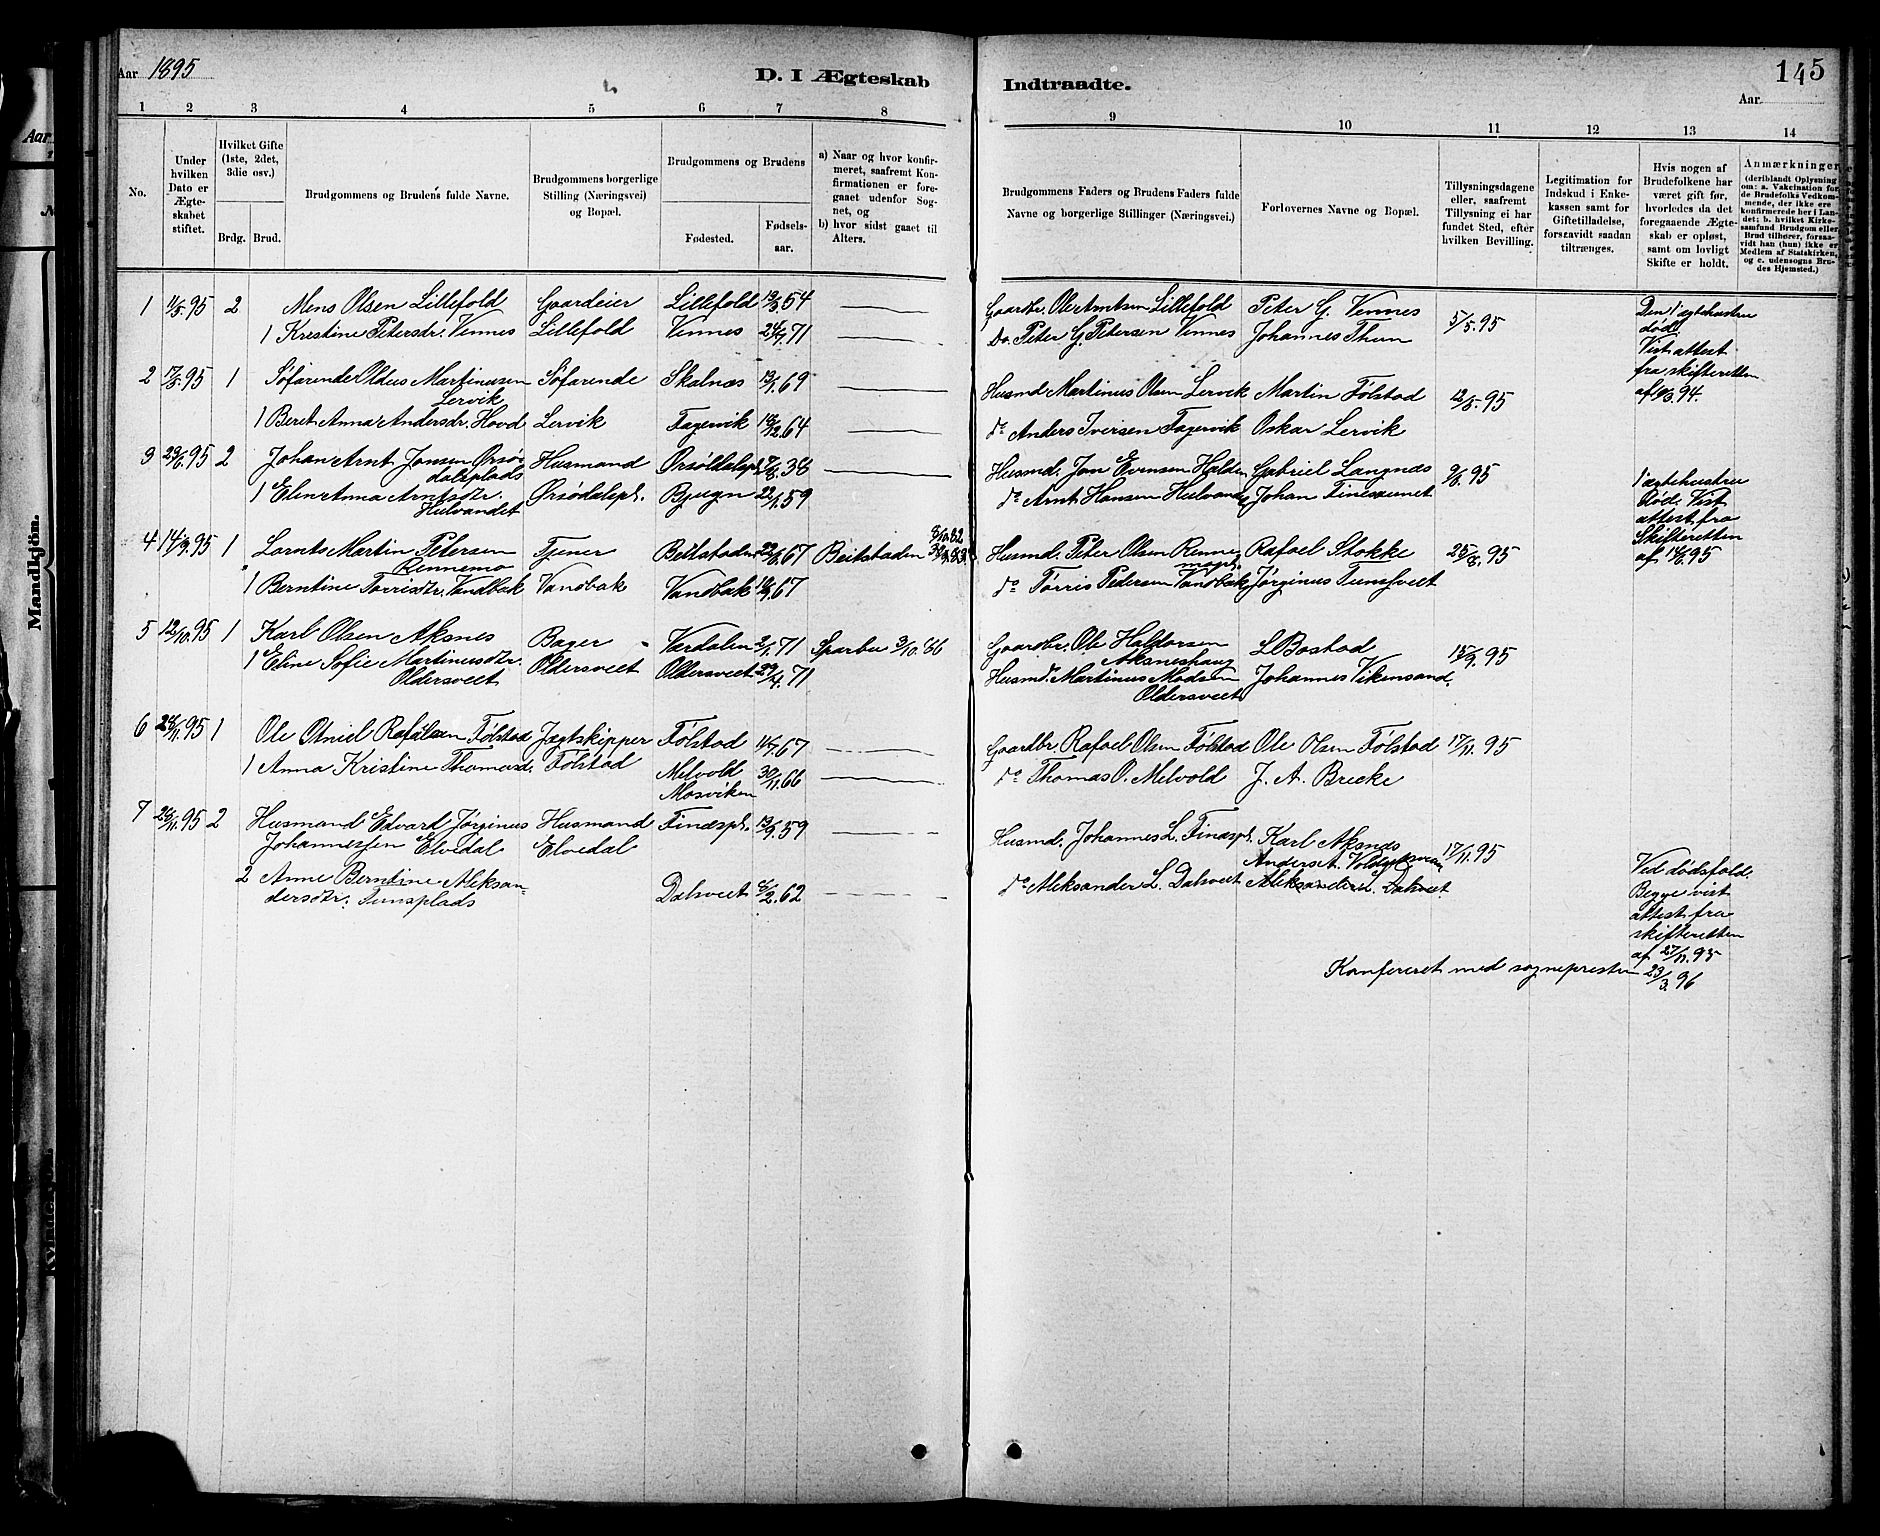 Aar 1895
D. I Ægteskab
Indtraadte.
145
Aar
1 2 3 4 5 6 7 8
9 10 11 12 13 14
No.
Under hvilken Dato er Ægteskabet stiftet.
Hvilket Gifte (1ste, 2det, 3die osv.)
Brdg. Brud.
Brudgommens og Brudens fulde Navne.
Brudgommens borgerlige Stilling (Næringsvei) og Bopæl.
Brudgommens og Brudens
Fødested.
Fødselsaar.
a) Naar og hvor konfirmeret, saafremt Konfirmationen er foregaaet udenfor Sognet, og
b) hvor sidst gaaet til Alters.
Brudgommens Faders og Brudens Faders fulde Navne og borgerlige Stillinger (Næringsvei.)
Forlovernes Navne og Bopæl.
Tillysningsdagene eller, saafremt Tillysning ei har fundet Sted, efter hvilken Bevilling.
Legitimation for Indskud i Enkekassen samt for Giftetilladelse, forsaavidt saadan tiltrænges.
Hvis nogen af Brudefolkene har været gift før, hvorledes da det foregaaende Ægteskab er opløst, samt om lovligt Skifte er holdt.
Anmærkninger (deriblandt Oplysning om: a. Vakcination for de Brudefolks Vedkommende, der ikke ere konfirmerede her i Landet; b. hvilket Kirkesamfund Brudgom eller Brud tilhører, forsaavidt han (hun) ikke er Medlem af Statskirken, og c. udensogns Brudes Hjemsted.)
1 11/5.95 2 Mens Olsen Lillefold Gaardeier Lillefold 19/3.54 Gaardbr. Ole Arntsen Lillefold Peter G. Vennes 5/5.95
1 Kristine Petersdr. Vennes Lillefold Vennes 24/7.71 Do. Peter G. Petersen Vennes Johannes Thun
Den 1 ægtehustru
død.
Vist attest
fra skifteretten
2 17/5.95 1 Søfarende Oldus Martinusen Søfarende Skalnæs 13/1.69 Husmd. Martinus Olsen Lervik Martin Følstad 12/5.95
Lervik
1 Beret Anna Andersdr. Hovd Lervik Fagervik 18/12.64 do Anders Iversen Fagervik Oskar Lervik
3 29/6.95 2 Johan Arnt Jonsen Ørsø- Husmand Ørsøldalspl. 7/8.38 Husmd. Jon Evensen Halden Gabriel Langnæs 9/6.95
dalsplads
1 Elen Anna Arntsdtr. Ørsødalspl. Bjugn 22/1.59 do Arnt Hansen Hulvandet Johan Finesmunet
Hulvandet
1 ægtehustru
død. Vist
attest fra
Skifteretten
4 14/9.95 1 Lornts Martin Petersen Tjener Beitstaden 22/6.67 Beitstaden Husmd. Peter Olsen Renne- Rafael Stokke 25/8.95
Rennemo
1 Berntine Torrisdtr. Vandbak Vandbak Vandbak do Tørris Pedersen Vandbak Jørginus Tunsveet
5 12/10.95 1 Karl Olsen Aksnes Bager Værdalen 2/1.71 Sparbu 3/10.86 Gaardbr. Ole Haldorsen L Bostad 15/9.95
Aksneshaug
1 Eline Sofie Martinusdtr. Oldersveet Oldersveet 29/4.71 Husmd. Martinus Madsen Johannes Vikensand.
Oldersveet
Oldersveet
6 1 Ole Otniel Rafaelsen Følstad Jægtskipper Følstad Gaardbr. Rafael Olsen Følstad Ole Olsen Følstad 17/11.95
1 Anna Kristine Thomasd. Følstad Melvold 30/11.66 do Thomas O. Melvold J. A. Brecke
Mosviken
7 28/11.95 2 Husmand Edvard Jørginus Husmand Finæspl. 13/9.59 Husmd. Johannes L. Finæspl. Karl Aksnæs 17/11.95
Johannessen Elvedal Elvedal
2 Anne Berntine Aleksan- Dalsveet 6/2.62 do Aleksander L. Dalsveet
dersdtr. Tunsplads
Ved dødsfald.
Begge vist
attest fra
skifteretten
af 27/11.95
Konfereret med sognepresten 23/3.96
Mandkjön.